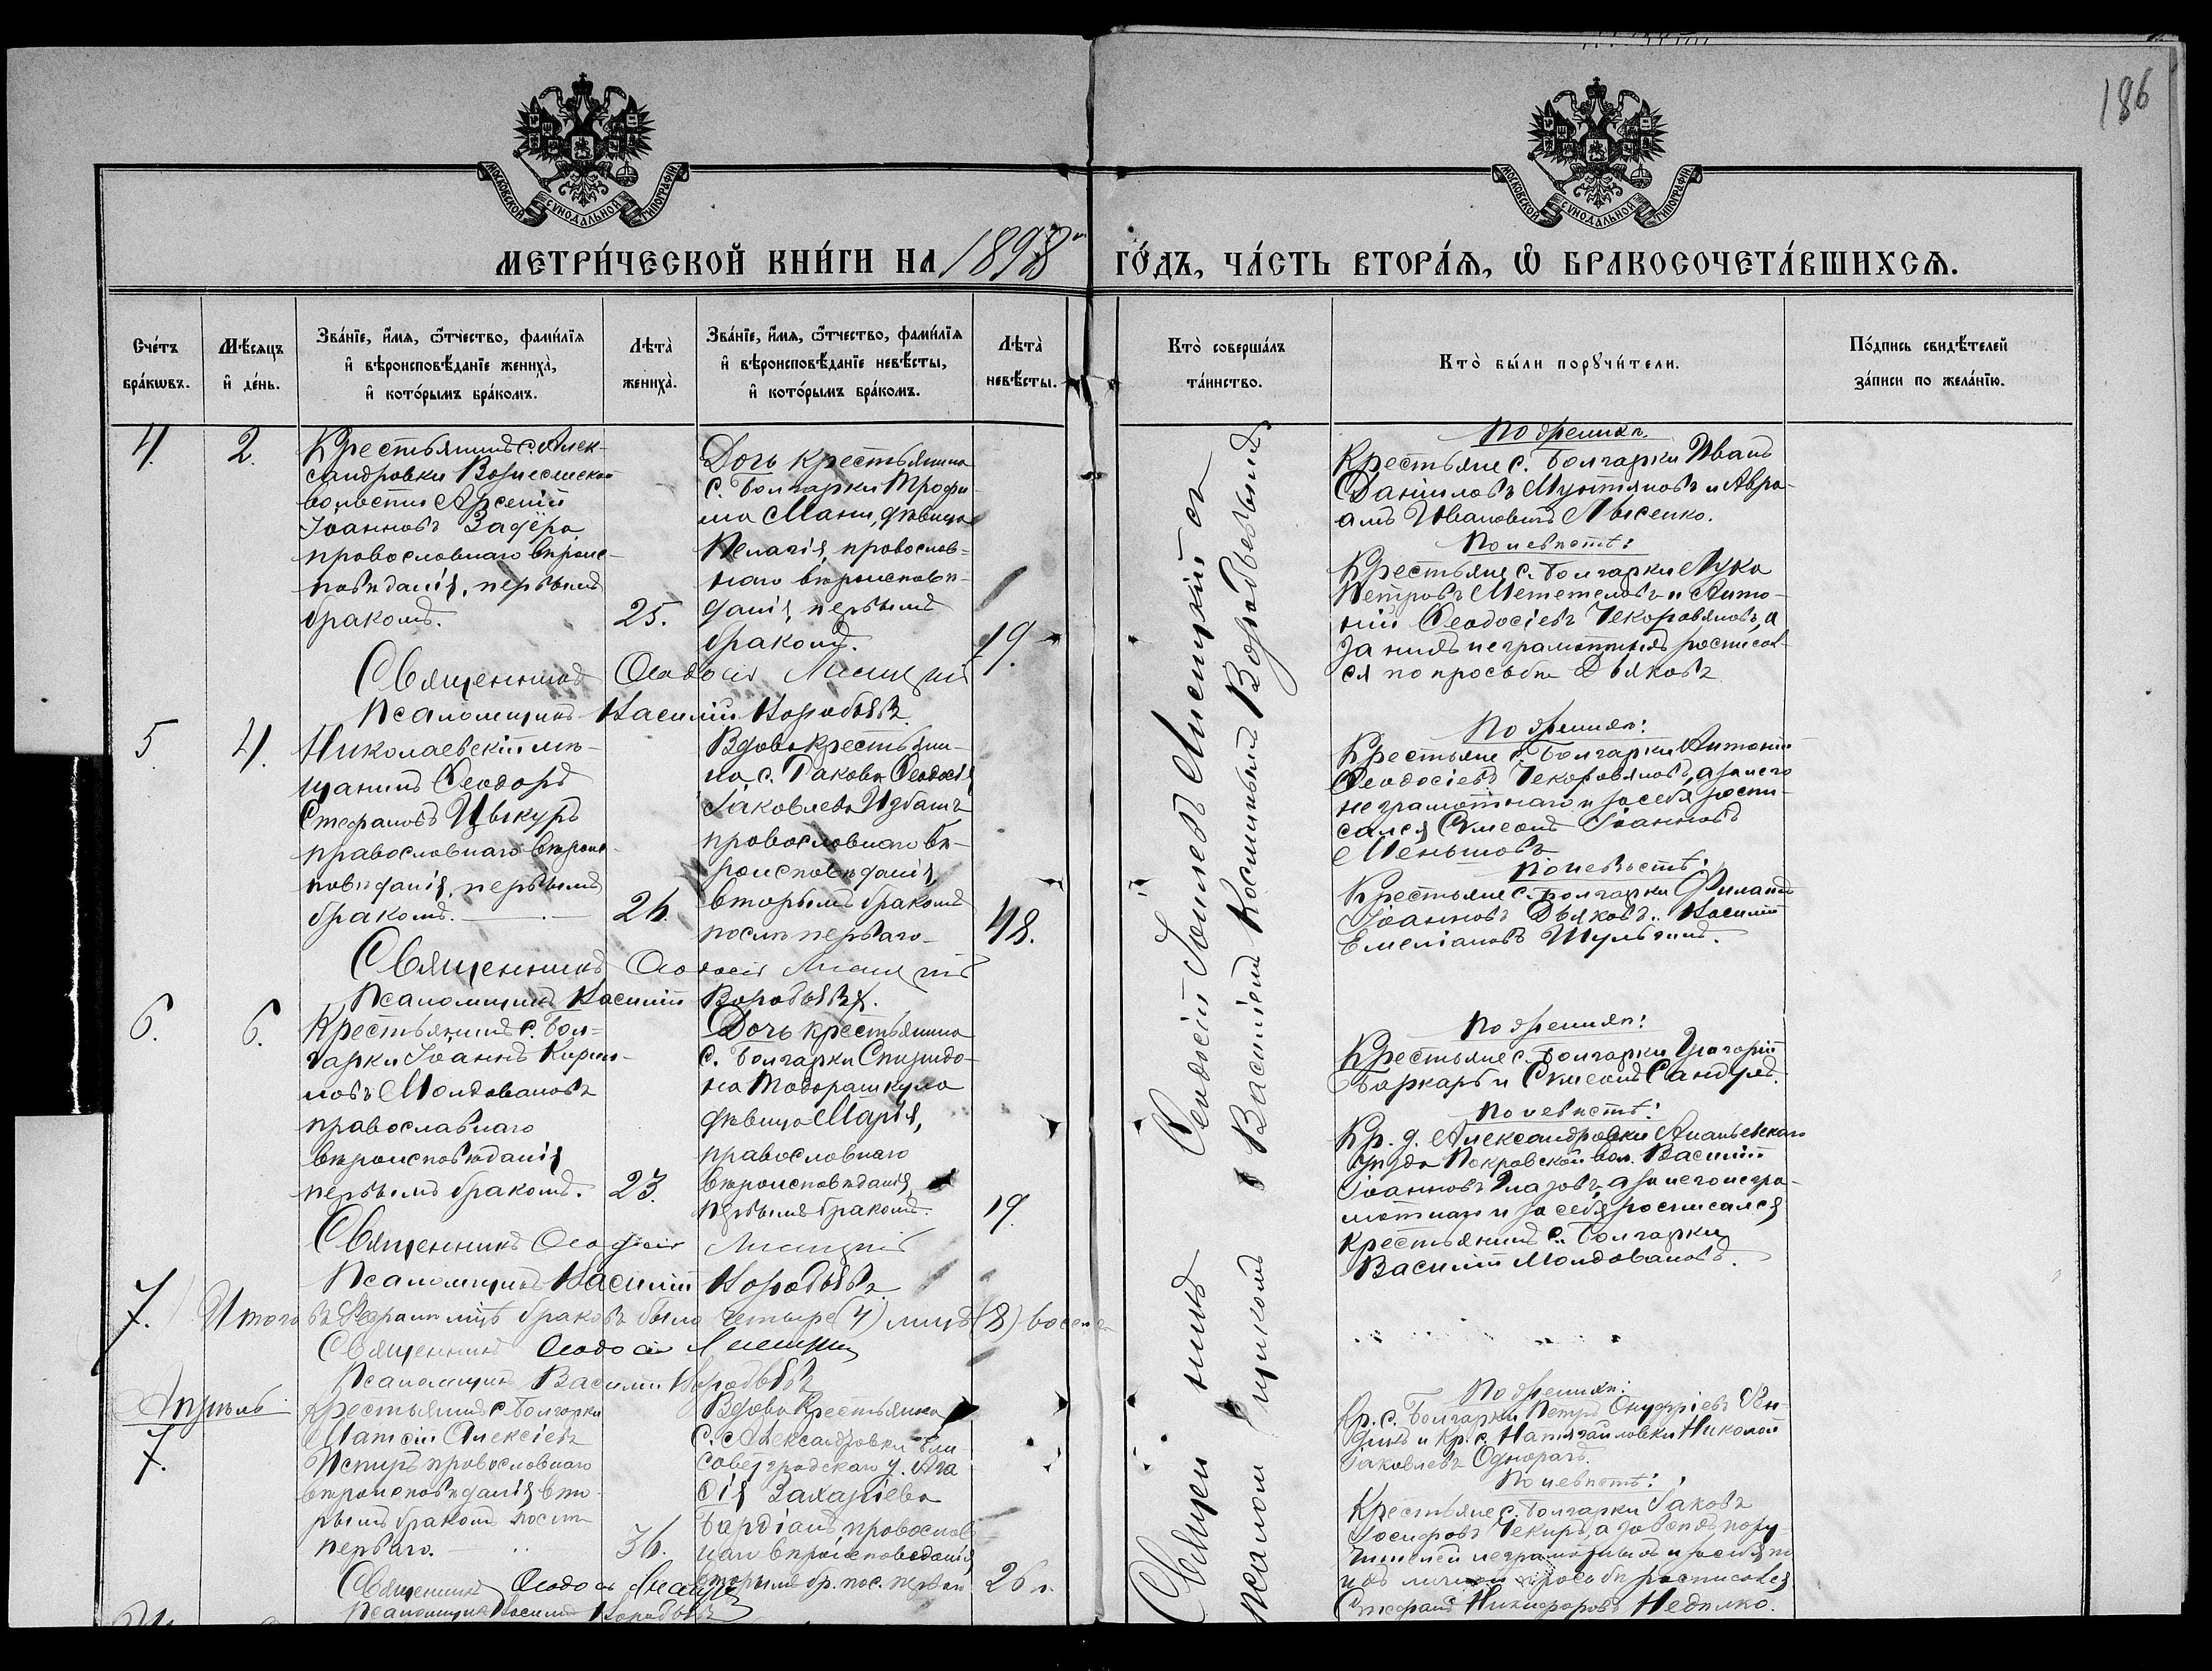 186
МОСКОВСКОЙ СѴНОДАЛЬНОЙ ТИПОГРАФІИ
МОСКОВСКОЙ СѴНОДАЛЬНОЙ ТИПОГРАФІИ
МЕТРИ́ЧЕСКОЙ КНИ́ГИ НА 1898 ГО́ДЪ, ЧА́СТЬ ВТОРА́Ѧ, Ѽ БРАКОСОЧЕТА́ВШИХСѦ.
Сче́тъ
бра́кѡвъ.
Мѣ́сѧцъ
и҆ де́нь.
Зва́нїе, и҆́мѧ, ѻ҆́тчество, фами́лїѧ
и҆ вѣроисповѣ́данїе жениха̀,
и҆ кото́рымъ бра́комъ.
Лѣ̑та̀
жениха̀.
Зва́нїе, и҆́мѧ, ѻ҆́тчество, фами́лїѧ
и҆ вѣроисповѣ́данїе невѣ́сты,
и҆ кото́рымъ бра́комъ.
Лѣ̑та̀
невѣ́сты.
Кто̀ соверша́лъ
та́инство.
Кто̀ бы́ли порꙋчи́тели.
По́дпись свидѣ́телей
за́писи по жела́нїю.
4.
2.
Крестьянинъ с. Алек-
сандровки Вознесенской
волости Арсеній
Іоанновъ Задёра,
православнаго вѣроис-
повѣданія, первымъ
бракомъ.
25.
Дочь крестьянина
с. Болгарки Трофи-
ма Мани, дѣвица
Пелагія, православ-
наго вѣроисповѣ-
данія, первымъ
бракомъ.
19.
Священникъ Ѳеодосій Лисицкій
Псаломщикъ Василій Воробьевъ
По женихѣ.
Крестьяне с. Болгарки Иванъ
Даніиловъ Мунтяновъ и Авра-
амъ Ивановичъ Лысенко.
По невѣстѣ:
Крестьяне с. Болгарки Лука
Петровъ Мететеловъ и Анто-
ній Ѳеодосіевъ Чекоровяновъ, а
за нихъ неграмотныхъ росписал-
ся по просьбѣ Дьяковъ
5.
4.
Николаевскій мѣ-
щанинъ Ѳеодоръ
Стефановъ Цыкуръ
православнаго вѣроис-
повѣданія, первымъ
бракомъ.
26.
Вдова крестьяни-
на с. Ракова Ѳеодосія
Іаковлева Избашъ
православнаго вѣ-
роисповѣданія,
вторымъ бракомъ
послѣ перваго
48.
Священникъ Ѳеодосій Лисицкій
Псаломщикъ Василій Воробьевъ.
По женихѣ:
Крестьяне с. Болгарки Антоній
Ѳеодосіевъ Чекоровяновъ, а за него
неграмотнаго и за себя роспи-
сался Сѵмеонъ Іоанновъ
Меньшовъ
По невѣстѣ:
Крестьяне с. Болгарки Филиппъ
Іоанновъ Дьяковъ. Василій
Емеліановъ Шульгинъ.
6.
6.
Крестьянинъ с. Бол-
гарки Іоаннъ Кирил-
ловъ Молдовановъ
православнаго
вѣроисповѣданія
первымъ бракомъ.
23.
Дочь крестьянина
с. Болгарки Спиридо-
на Тодорашкула
дѣвица Марія,
православнаго
вѣроисповѣданія,
первымъ бракомъ.
19.
Священникъ Ѳеодосій Лисицкій
Псаломщикъ Василій Воробьевъ
По женихѣ:
Крестьяне с. Болгарки Григорій
Баркарь и Сѵмеонъ Сандулъ.
По невѣстѣ:
Кр. д. Александровки Ананьевскаго
уѣзда Покровской вол. Василій
Іоанновъ Глазовъ, а за него негра-
мотнаго и за себя росписался
крестьянинъ с. Болгарки
Василій Молдовановъ.
7. Итого въ Февралѣ мцѣ браковъ было четыре (4) лицъ (8) восем
Священникъ Ѳеодосій Лисицкій
Псаломщикъ Василій Воробьевъ
Апрѣль
7.
Крестьянинъ с. Болгарки
Матѳій Алексіевъ
православнаго
вѣроисповѣданія, вто-
рымъ бракомъ послѣ
перваго.
36.
Вдова Крестьянка
с. Александровки Ели-
саветградскаго у. Ага-
ѳія Захаріева
Бардіанъ, православ
наго вѣроисповеданія
вторымъ бр. пос. перваго
26 л.
Священникъ Ѳеодосій Лисицкій
Псаломщикъ Василій Воробьевъ
По женихѣ:
Кр. с. Болгарки Петръ Онуфріевъ
и Кр. с. Николай
Іаковлевъ Однорогъ.
По невѣстѣ:
Крестьяне с. Болгарки Іаковъ
Іосифовъ Чекиръ, а за всѣхъ пору-
чителей неграмотныхъ и за себя по
ихъ личной просьбѣ росписался
Стефанъ Никифоровъ Недилко.
Священникъ Ѳеодосій Лисицкій съ
псаломщикомъ Василіемъ Воробьевымъ